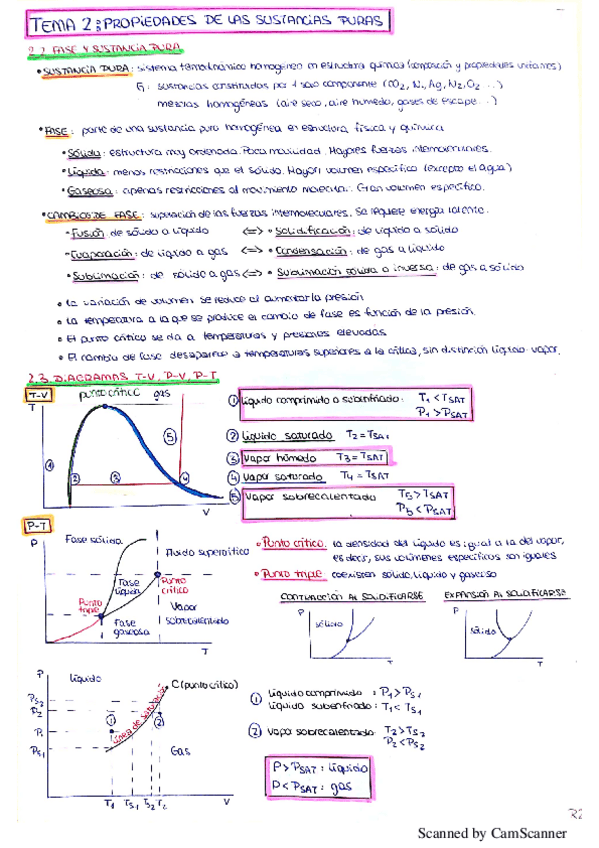 TEMA 2: PROPIEDADES DE LAS SUSTANCIAS PURAS
FASE Y SUSTANCIA PURA
• SUSTANCIA PURA: sistema termodinámico homogéneo en estructura química (composición y propiedades uniformes)
sustancias constituidas por 1 solo componente (CO2, N., Ag, N2, O2 ...)
mezclas homogéneas (aire seco, aire húmedo, gases de escape...)
• FASE: parte de una sustancia pura homogénea en estructura física y química
• Sólida: estructura muy ordenada. Poca movilidad. Mayores fuerzas intermoleculares.
• Líquida: menos restricciones que el sólido. Mayor volumen específico (excepto el agua)
• Gaseosa: apenas restricciones al movimiento molecular. Gran volumen específico.
• CAMBIOS DE FASE: superación de las fuerzas intermoleculares. Se requiere energía latente.
• Fusión: de sólido a líquido <=> • Solidificación: de líquido a sólido
• Evaporación: de líquido a gas <=> • Condensación: de gas a líquido
• Sublimación: de sólido a gas <=> • Sublimación sólida o inversa: de gas a sólido
• La variación de volumen se reduce al aumentar la presión
• La temperatura a la que se produce el cambio de fase es función de la presión.
• El punto crítico se da a temperaturas y presiones elevadas
• El cambio de fase desaparece a temperaturas superiores a la crítica, sin distinción líquido-vapor.
2.3. DIAGRAMAS T-V, P-V, P-T
T-V
T
punto crítico
gas
1
2
3
4
5
V
① Líquido comprimido o subenfriado: T1 < TSAT
P1 > PSAT
② Líquido saturado T2 = TSAT
③ Vapor húmedo T3 = TSAT
④ Vapor saturado T4 = TSAT
⑤ Vapor sobrecalentado T5 > TSAT
P5 < PSAT
P-T
P
Fase sólida
Fluido supercrítico
Fase líquida
Punto crítico
Punto triple
Fase gaseosa
Vapor sobrecalentado
T
• Punto crítico: la densidad del líquido es igual a la del vapor,
es decir, sus volúmenes específicos son iguales
• Punto triple: coexisten sólido, líquido y gaseoso
CONTRACCIÓN AL SOLIDIFICARSE
EXPANSIÓN AL SOLIDIFICARSE
P
sólido
T
P
sólido
T
P
líquido
C (punto crítico)
PS2
P2
P1
PS1
①
②
línea de saturación
Gas
T1 TS1 TS2 T2
V
① Líquido comprimido: P1 > PS1
Líquido subenfriado: T1 < TS1
② Vapor sobrecalentado T2 > TS2
P2 < PS2
P > PSAT: líquido
P < PSAT: gas
Scanned by CamScanner